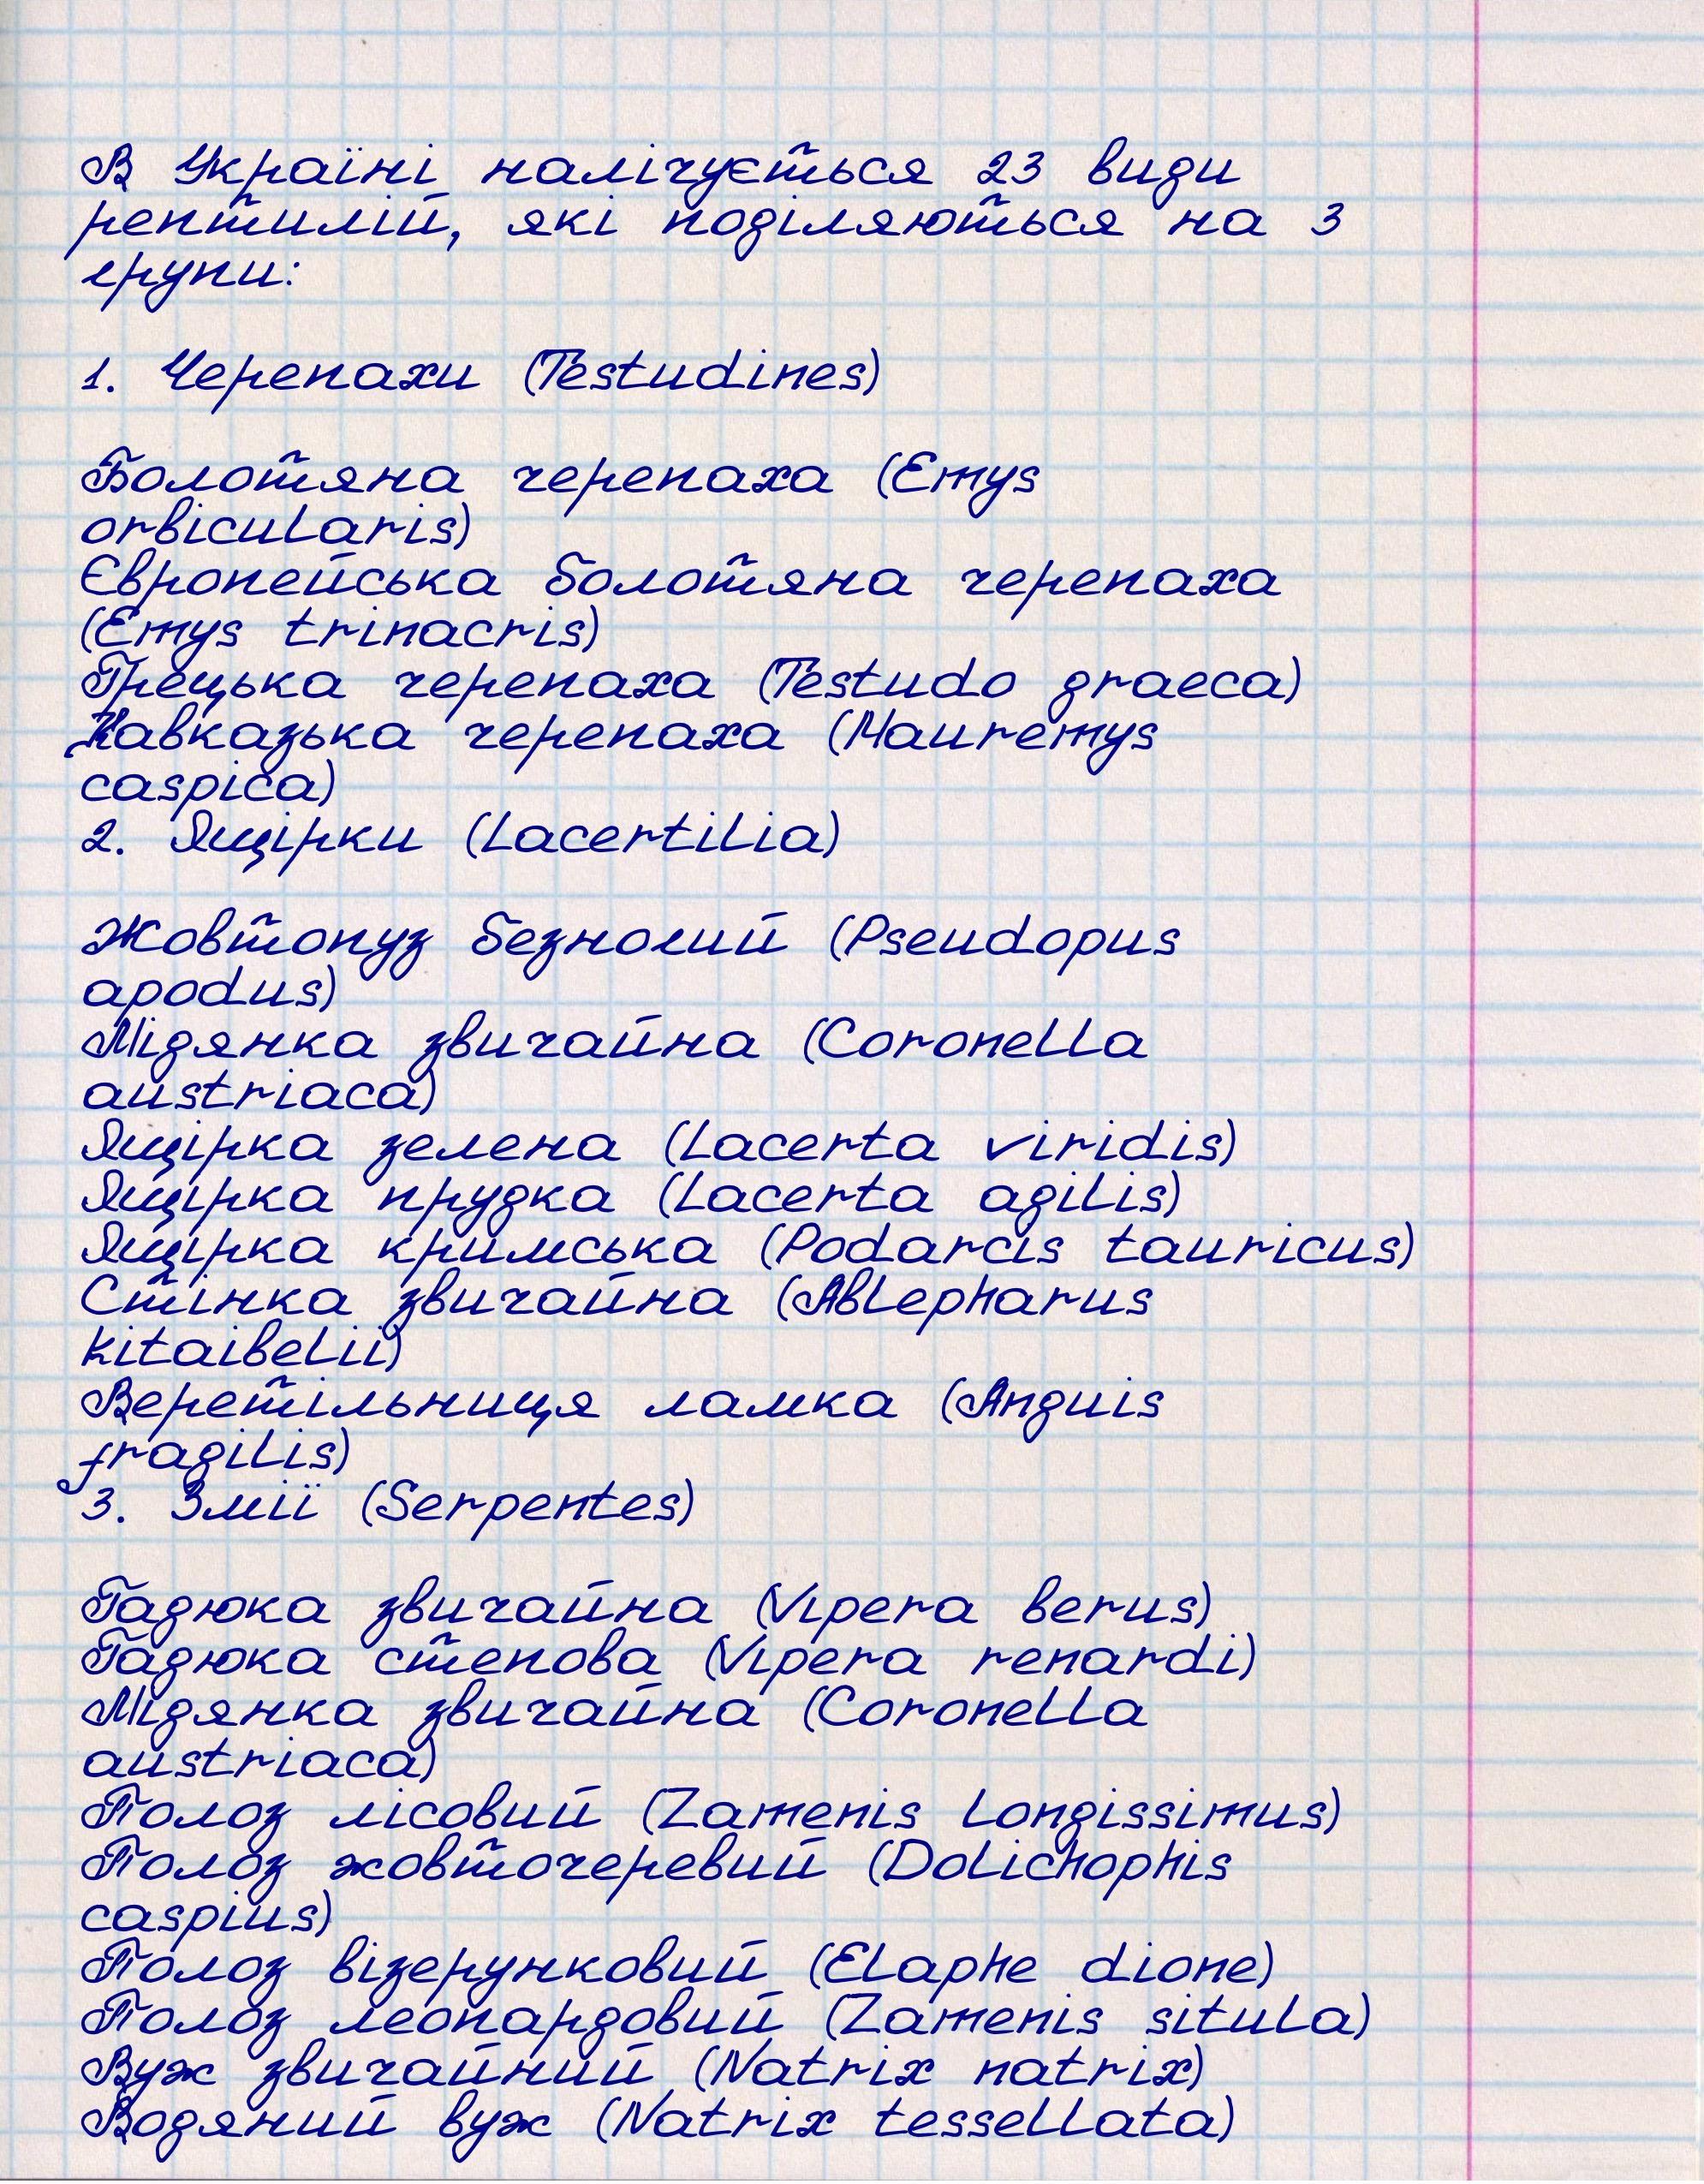 В Україні налічується 23 види
рептилій, які поділяються на 3
групи:
1. Черепахи (Testudines)
Болотяна черепаха (Emys
orbicularis)
Європейська болотяна черепаха
(Emys trinacris)
Грецька черепаха (Testudo graeca)
Кавказька черепаха (Mauremys
caspica)
2. Ящірки (Lacertilia)
Жовтопуз безногий (Pseudopus
apodus)
Мідянка звичайна (Coronella
austriaca)
Ящірка зелена (Lacerta viridis)
Ящірка прудка (Lacerta agilis)
Ящірка кримська (Podarcis tauricus)
Стінка звичайна (Ablepharus
kitaibelii)
Веретільниця ламка (Anguis
fragilis)
3. Змії (Serpentes)
Гадюка звичайна (Vipera berus)
Гадюка степова (Vipera renardi)
Мідянка звичайна (Coronella
austriaca)
Полоз лісовий (Zamenis longissimus)
Полоз жовточеревий (Dolichophis
caspius)
Полоз візерунковий (Elaphe dione)
Полоз леопардовий (Zamenis situla)
Вуж звичайний (Natrix natrix)
Водяний вуж (Natrix tessellata)